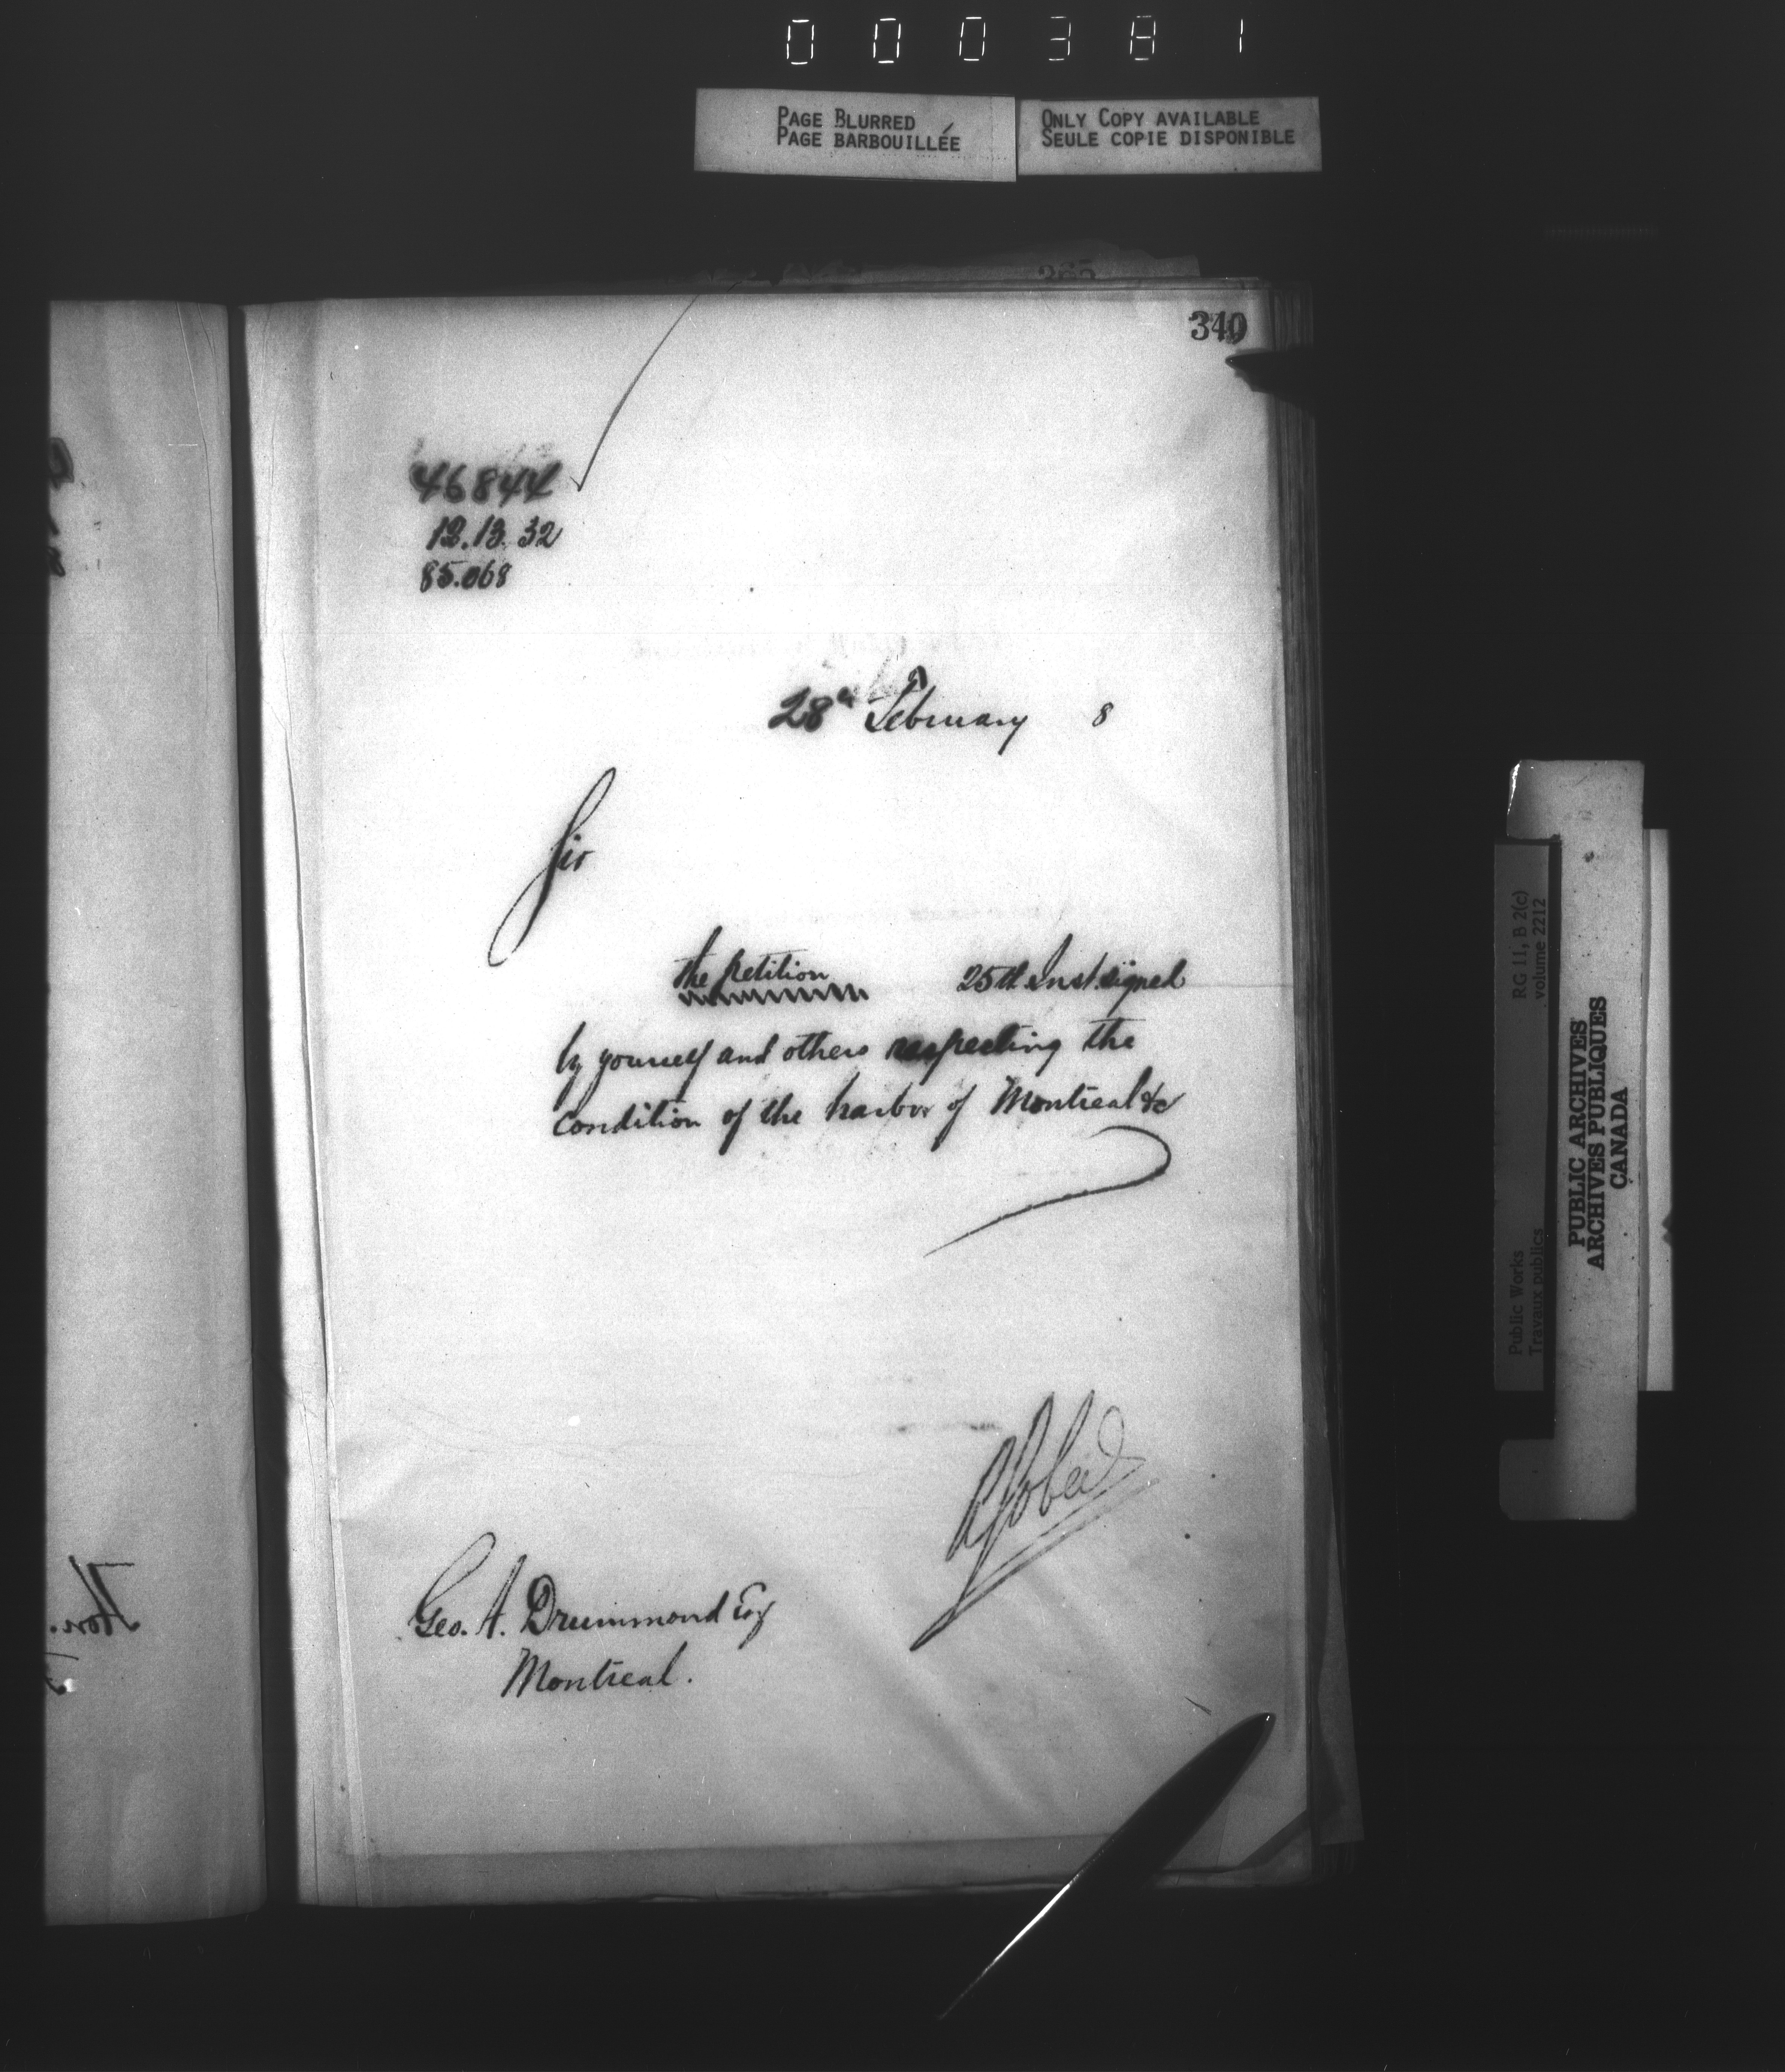 000381
PAGE BLURRED
PAGE BARBOUILLÉE
ONLY COPY AVAILABLE
SEULE COPIE DISPONIBLE
340
46844
12.13.32
85.068
28th February 8
Sir
the petition 25th Inst. signed
by yourself and others respecting the
condition of the harbor of Montreal &c
Geo. A. Drummond Esq
Montreal.
Hon.
RG 11, B 2(c)
volume 2212
Public Works
Travaux publics
PUBLIC ARCHIVES
ARCHIVES PUBLIQUES
CANADA